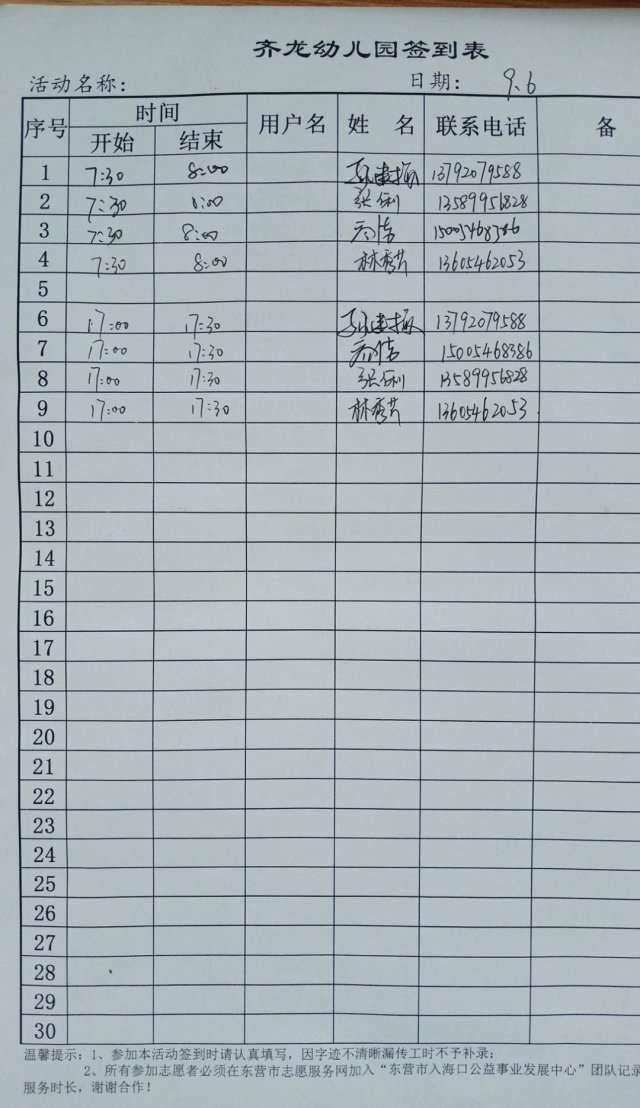 齐龙幼儿园签到表
活动名称： 日期： 9.6
序号 时间 用户名 姓 名 联系电话 备
开始 结束
1 7:30 8:00 13792079588
2 7:30 8:00 张利 13589956828
3 7:30 8:00 15005468386
4 7:30 8:00 林秀芹 13605462053
5
6 17:00 17:30 13792079588
7 17:00 17:30 15005468386
8 17:00 17:30 张利 13589956828
9 17:00 17:30 林秀芹 13605462053
10
11
12
13
14
15
16
17
18
19
20
21
22
23
24
25
26
27
28
29
30
温馨提示：1、参加本活动签到时请认真填写，因字迹不清晰漏传工时不予补录；
2、所有参加志愿者必须在东营市志愿服务网加入“东营市入海口公益事业发展中心”团队记录
服务时长，谢谢合作！